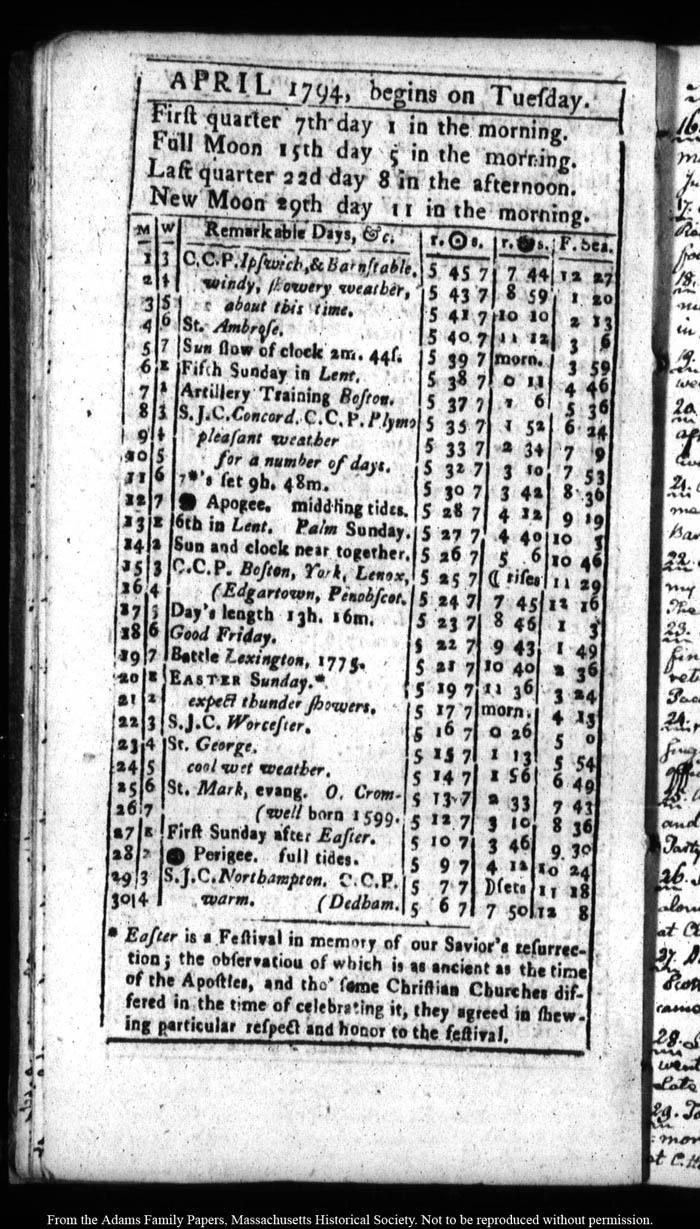 APRIL 1794, begins on Tuesday.
First quarter 7th day 1 in the morning.
Full Moon 15th day 5 in the morning.
Last quarter 22d day 8 in the afternoon.
New Moon 29th day 11 in the morning.
M W Remarkable Days, &c. r. ☉ s. r. ● s. F. Sea.
1 3 C.C.P. Ipswich, & Barnstable. 5 45 7 7 44 12 27
2 4 windy, showery weather, 5 43 7 8 59 1 20
3 5 about this time. 5 41 7 10 10 2 13
4 6 St. Ambrose. 5 40 7 11 12 3 6
5 7 Sun slow of clock 2m. 44s. 5 39 7 morn. 3 59
6 E Fifth Sunday in Lent. 5 38 7 0 11 4 46
7 2 Artillery Training Boston. 5 37 7 1 6 5 36
8 3 S.J.C. Concord. C.C.P. Plymo 5 35 7 1 52 6 24
9 4 pleasant weather 5 33 7 2 34 7 9
10 5 for a number of days. 5 32 7 3 10 7 53
11 6 7*'s set 9h. 48m. 5 30 7 3 42 8 36
12 7 ● Apogee. middling tides. 5 28 7 4 12 9 19
13 E 6th in Lent. Palm Sunday. 5 27 7 4 40 10 3
14 2 Sun and clock near together. 5 26 7 5 6 10 46
15 3 C.C.P. Boston, York, Lenox, 5 25 7 ☾ rises 11 29
16 4 (Edgartown, Penobscot. 5 24 7 7 45 12 16
17 5 Day's length 13h. 16m. 5 23 7 8 46 1 3
18 6 Good Friday. 5 22 7 9 43 1 49
19 7 Battle Lexington, 1775. 5 21 7 10 40 2 36
20 E EASTER Sunday.* 5 19 7 11 36 3 24
21 2 expect thunder showers. 5 17 7 morn. 4 13
22 3 S.J.C. Worcester. 5 16 7 0 26 5 0
23 4 St. George. 5 15 7 1 13 5 54
24 5 cool wet weather. 5 14 7 1 56 6 49
25 6 St. Mark, evang. O. Crom- 5 13 7 2 33 7 43
26 7 (well born 1599. 5 12 7 3 10 8 36
27 E First Sunday after Easter. 5 10 7 3 46 9 30
28 2 ● Perigee. full tides. 5 9 7 4 12 10 24
29 3 S.J.C. Northampton. C.C.P. 5 7 7 ☽ sets 11 18
30 4 warm. (Dedham. 5 6 7 7 50 12 8
* Easter is a Festival in memory of our Savior's resurrec-
tion; the observatiou of which is as ancient as the time
of the Apostles, and tho' some Christian Churches dif-
fered in the time of celebrating it, they agreed in shew-
ing particular respect and honor to the festival.
16
17.
18.
in
19.
we
20.
21.
22.
my
The
23.
24.
25.
and
Party
26.
alon
at C
27.
came
28.
went
Late
29.
mor
at C.H
From the Adams Family Papers, Massachusetts Historical Society. Not to be reproduced without permission.